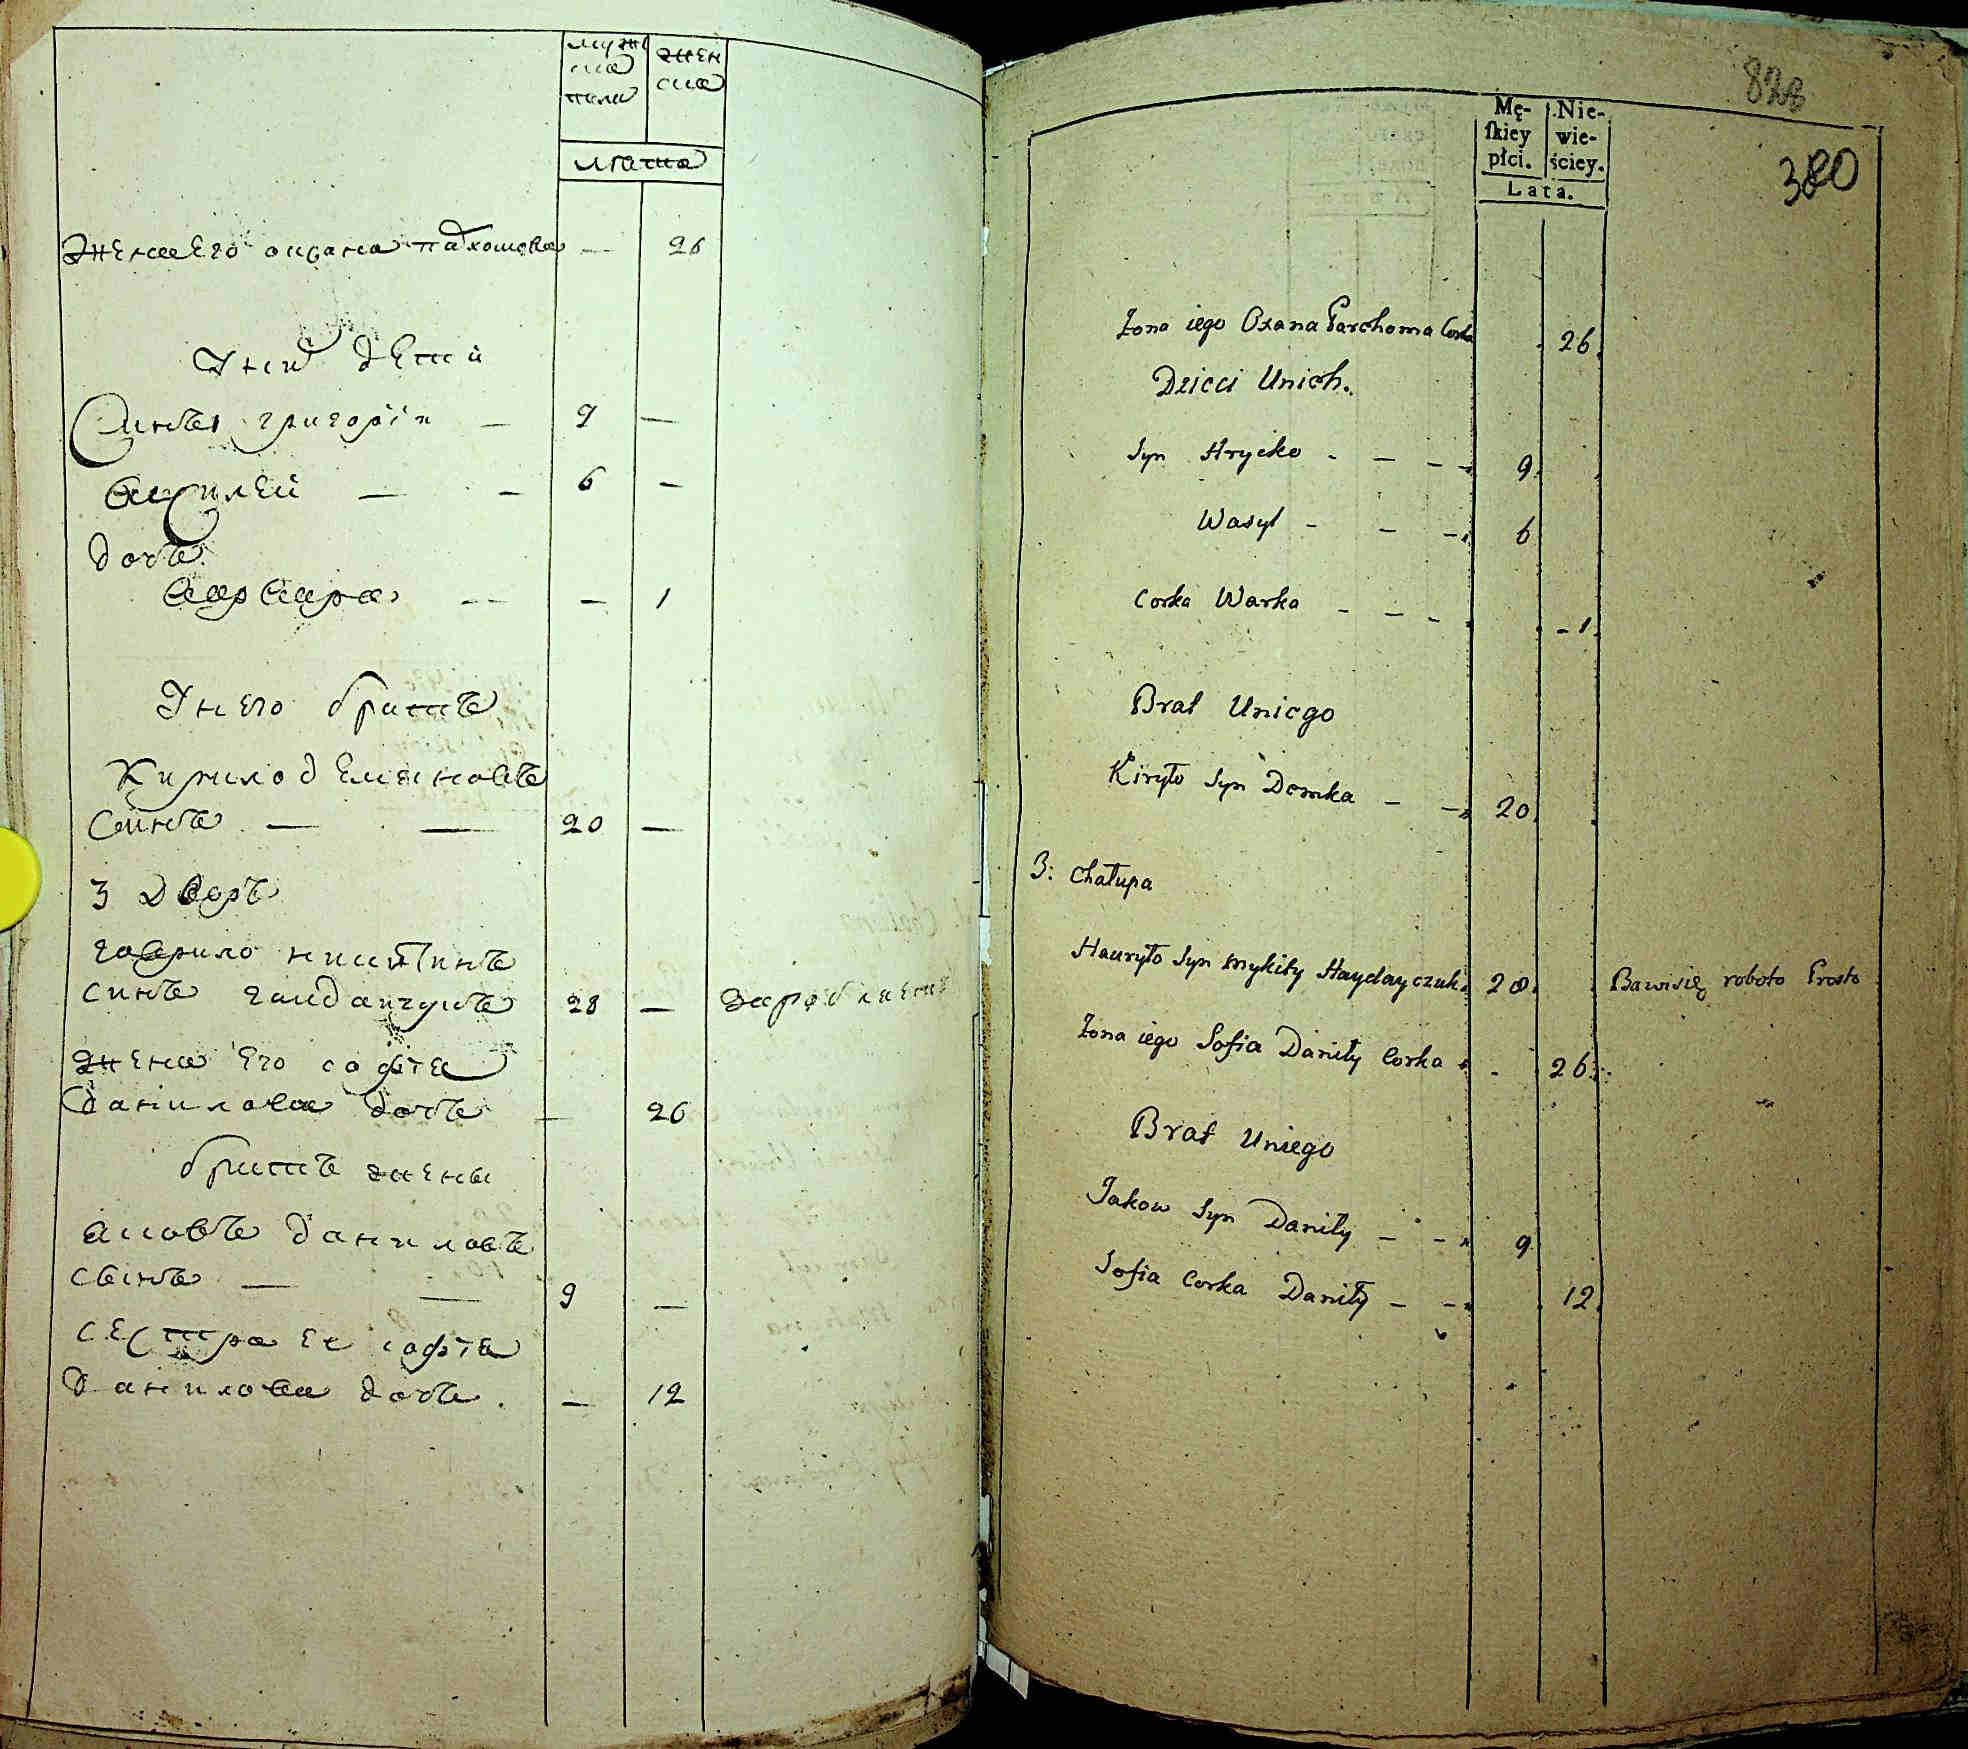 мужс
ка
пола
жен
ска
лѣта
Жена Его оксана пахомова — 26
У них дети
Синъ григорїи — 9 —
василей — — 6 —
дочъ
варвара — — — 1
У него братъ
Кирило демяновъ
синъ — — 20 —
3 Дворъ
гаврило никитинъ
синъ гайдайчукъ 28 —
жена Его софїя
данилова дочъ — 26
братъ жены
яковъ даниловъ
синъ — — 9 —
сестра Ее софїя
данилова дочь. — 12
828
380
Mę- Nie-
ſkiey wie-
płci. ściey.
Lata.
Żona iego Oxana Parchoma Corka 26.
Dzieci Unich.
Syn Hryćko - - - 9.
Wasyl - - - 6
Corka Warka - - - - 1.
Brat Uniego
Kiryło Syn Demka - - 20.
3: Chałupa
Hauryło Syn Mykity Haydayczuk. 28. Bawi się roboto Prosto
Żona iego Sofia Daniły Corka - 26.
Brat Uniego
Jakow Syn Daniły - - 9
Sofia Corka Daniły - - 12.